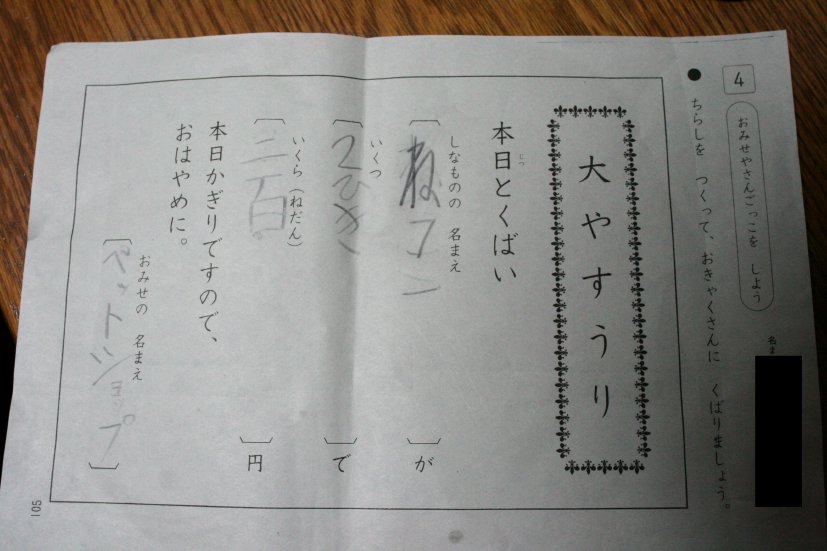 4
おみせやさんごっこを しよう
名ま
ちらしを つくって、おきゃくさんに くばりましょう。
大やすうり
本日とくばい
じつ
しなものの 名まえ
が
いくつ
2ひき
で
いくら（ねだん）
円
本日かぎりですので、
おはやめに。
おみせの 名まえ
ペットショップ
105